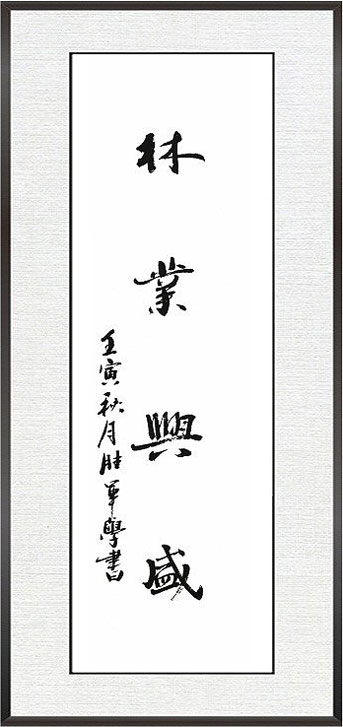 林業興盛
壬寅秋月胜軍學書